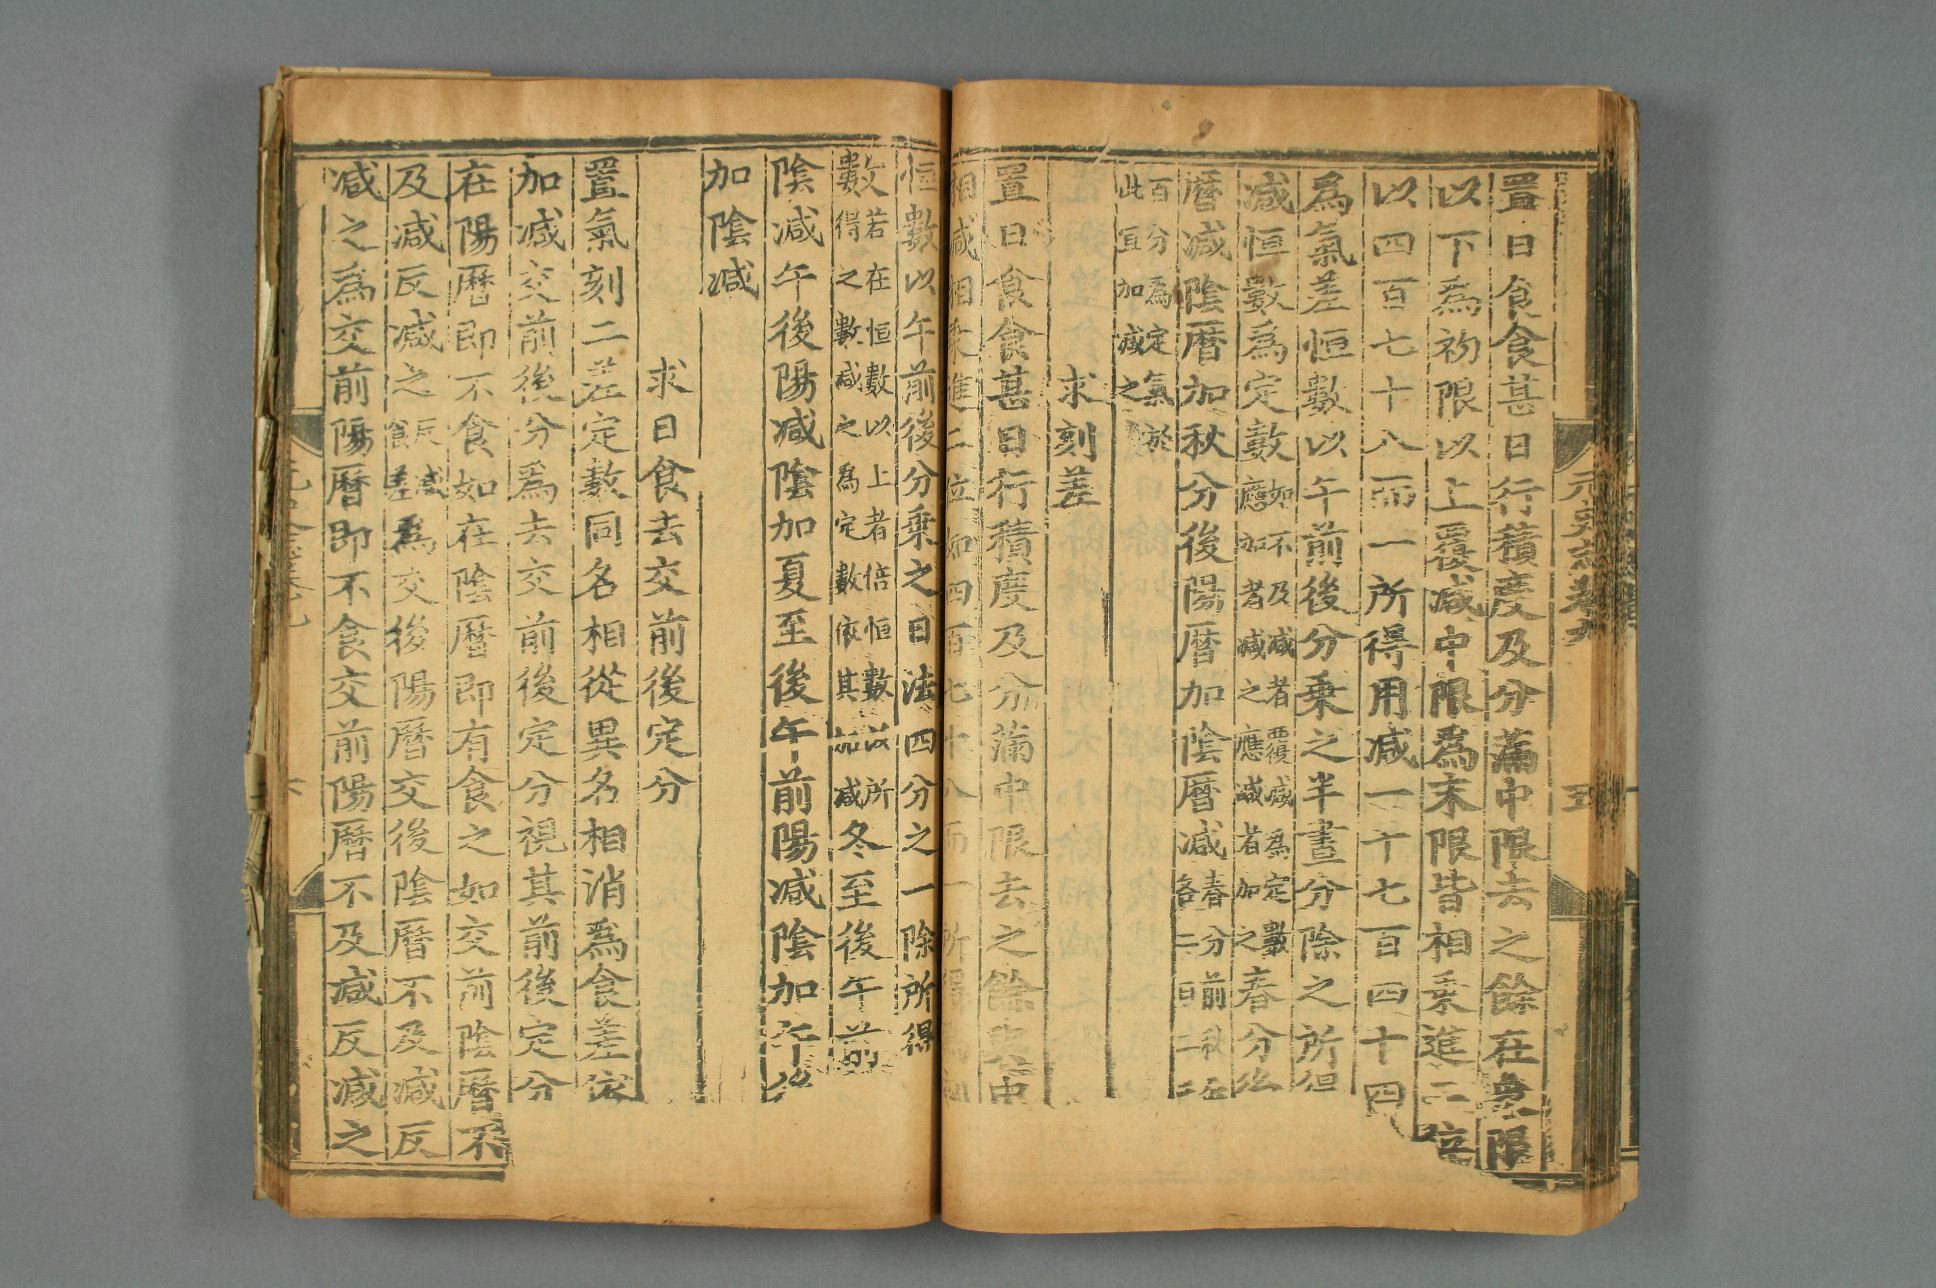 置日食食甚日行積度及分滿中限去之餘在初限
以下爲初限以上覆減中限爲末限皆相乘進二位
以四百七十八而一所得用減一千七百四十四
爲氣差恒數以午前後分乘之半晝分除之所得
減恒數爲定數如不及減者覆減爲定數應加者減之應減者加之春分後
陽曆減陰曆加秋分後陽曆加陰曆減春分前秋分後各二日二千
百分爲定氣於此宜加減之
求刻差
置日食食甚日行積度及分滿中限去之餘與中
相減相乘進二位如四百七十八而一所得爲刻
恒數以午前後分乘之日法四分之一除所得
數若在恒數以上者倍恒數以所得之數減之爲定數依其加減冬至後午前
陰減午後陽減陰加夏至後午前陽減陰加午後
加陰減
求日食去交前後定分
置氣刻二差定數同名相從異名相消爲食差依
加減交前後分爲去交前後定分視其前後定分
在陽曆即不食如在陰曆即有食之如交前陰曆不
及減反減之反減食差爲交後陽曆交後陰曆不及減反
減之爲交前陽曆即不食交前陽曆不及減反減之